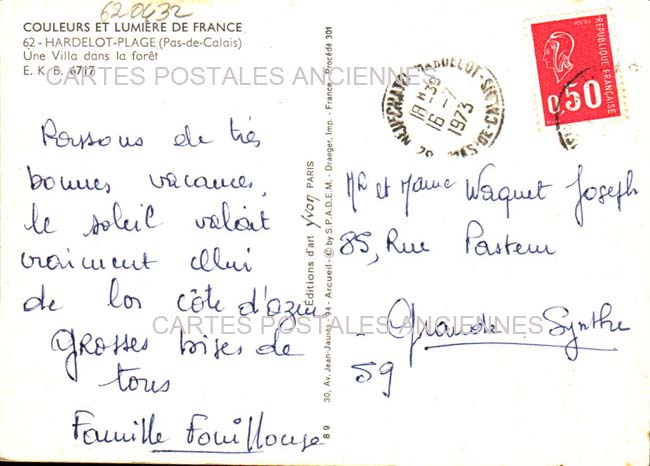 620632
COULEURS ET LUMIÈRE DE FRANCE
62 - HARDELOT-PLAGE (Pas-de-Calais)
Une Villa dans la forêt
E. K. B. 6717
CARTES POSTALES ANCIENNES
Passons de très
bonnes vacances,
le soleil valait
vraiment celui
de la côte d'azur
Grosses bises de
tous
Famille Fouillouse
Éditions d'art yvon PARIS
30, Av. Jean-Jaurès, 94 - Arcueil - © by S.P.A.D.E.M. - Draeger, Imp. - France - Procédé 301
89
NEUFCHATEL HARDELOT
18H30
16-7
1973
PAS-DE-CALAIS
POSTES
REPUBLIQUE FRANÇAISE
0,50
Mr et Mame Waquet Joseph
85, Rue Pasteur
- Grande Synthe
59
CARTES POSTALES ANCIENNES